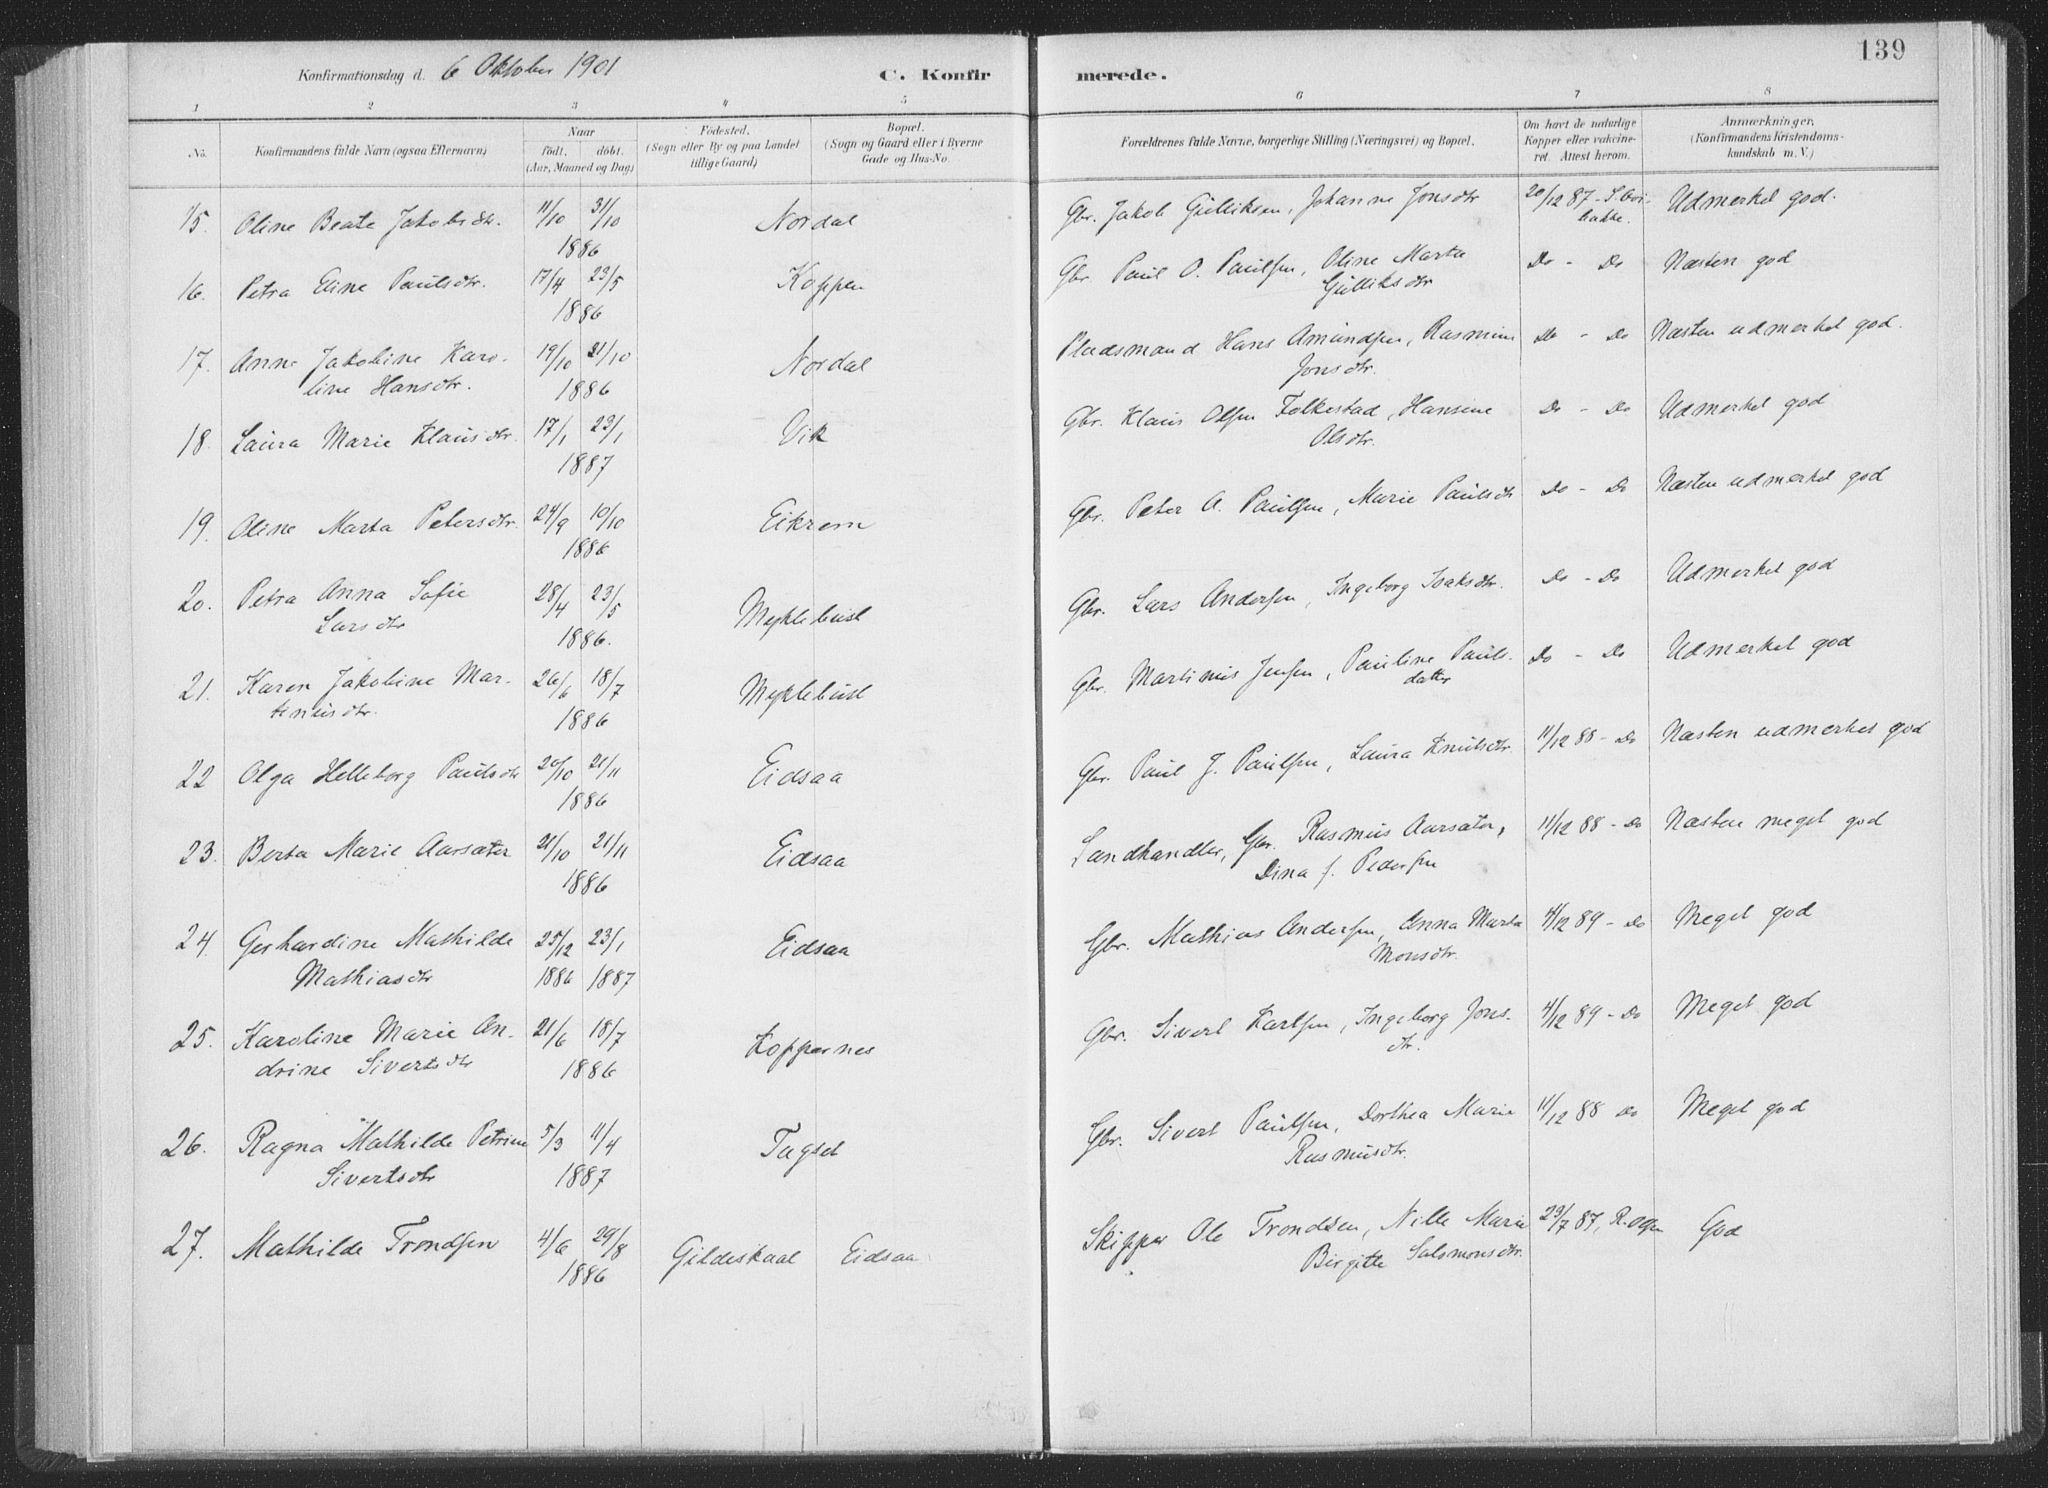 139
Konfirmationsdag d. 6 Oktober 1901 C. Konfirmerede.
1 2 3 4 5 6 7 8
No. Konfirmandens fulde Navn (ogsaa Efternavn) Naar født, døbt. (Aar, Maaned og Dag) Fødested. (Sogn eller By og paa Landet tillige Gaard) Bopæl. (Sogn og Gaard eller i Byerne Gade og Hus-No. Forældrenes fulde Navne, borgerlige Stilling (Næringsvei) og Bopæl. Om havt de naturlige Kopper eller vakcineret. Attest herom. Anmærkninger. (Konfirmandens Kristendomskundskab m. V.)
15. Oline Beate Jakobsdtr. 11/10 31/10 Nordal Gbr. Jakob Gulliksen, Johanne Jonsdtr 20/12 87 - Udmerket god.
1886
16. Petra Eline Paulsdtr. 17/4 23/5 Koppen Gbr. Paul O. Paulsen, Oline Marta Do - Do Næsten god
1886 Gulliksdtr
17. Anne Jakobine Karo- 19/10 21/10 Nordal Pladsmand Hans Amundsen, Rasmine Do - Do Næsten udmerket god.
line Hansdtr. 1886 Jonsdtr.
18. Laura Marie Klausdtr. 17/1 23/1 Vik Gbr. Klaus Olsen Folkestad, Hansine Do - Do Udmerket god
1887 Olsdtr.
19. Oline Marta Petersdtr. 24/9 10/10 Eikrem Gbr. Peter A. Paulsen, Marie Paulsdtr Do - Do Næsten udmerket god
1886
20. Petra Anna Sofie 28/4 23/5 Myklebust Gbr. Lars Andersen, Ingeborg Isaksdtr. Do - Do Udmerket god
Larsdtr 1886.
21. Karen Jakobine Mar- 26/6 18/7 Myklebust Gbr. Martinus Jensen, Pauline Pauls- Do - Do Udmerket god
tinusdtr. 1886 datter
22 Olga Helleborg Paulsdtr 20/10 21/11 Eidsaa Gbr. Paul J. Paulsen, Laura Knutsdtr. 11/12 88 - Do Næsten udmerket god
1886
23. Berta Marie Aarsæter 21/10 21/11 Eidsaa Landhandler, Gbr. Rasmus Aarsæter, 11/12 88 - Do Næsten meget god
1886 Dina f. Pedersen
24. Gerhardine Mathilde 25/12 23/1 Eidsaa Gbr. Mathias Andersen, Anna Marta 4/12 89 - Do Meget god
Mathiasdtr 1886 1887 Monsdtr.
25. Karoline Marie An- 21/6 18/7 Koppernes Gbr. Sivert Karlsen, Ingeborg Jons- 4/12 89 - Do Meget god
drine Sivertsdtr 1886 dtr.
26. Ragna Mathilde Petrine 5/3 11/4 Tagset Gbr. Sivert Paulsen, Dorthea Marie 11/12 88 Do Meget god
Sivertsdtr 1887 Rasmusdtr.
27. Mathilde Trondsen 4/6 29/8 Gildeskaal Eidsaa Skipper Ole Trondsen, Nille Marie 23/7 87, God
1886 Birgitte Salomonsdtr.